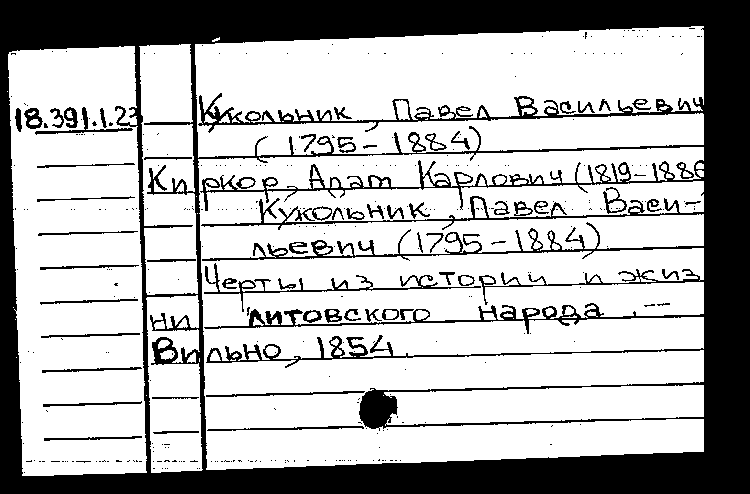 18.391.1.23 Кукольник, Павел Васильевич
(1795-1884)
Киркор, Адам Карлович (1819-1886
Кукольник, Павел Васи-
льевич (1795-1884)
Черты из истории и жиз
ни литовского народа. —
Вильно, 1854.